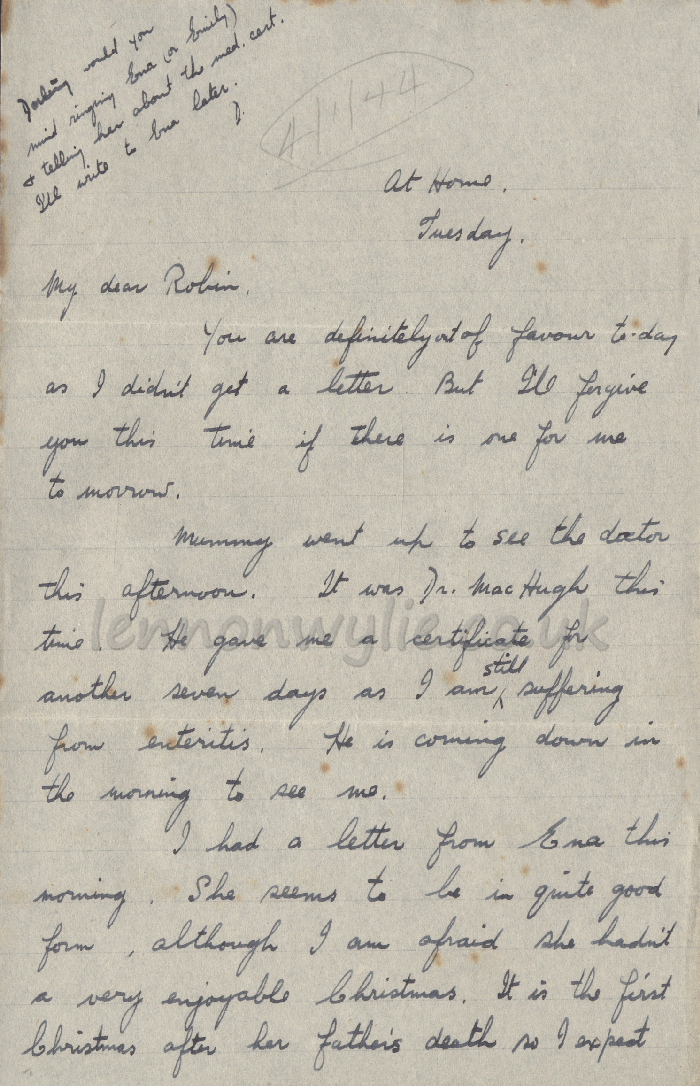 Darling would you
mind ringing Ena (or Emily)
& telling her about the med. cert.
I'll write to Ena later.
D.
4/1/44
At Home.
Tuesday.
My dear Robin,
You are definitely out of favour to-day
as I didn't get a letter. But I'll forgive
you this time if there is one for me
to morrow.
Mummy went up to see the doctor
this afternoon. It was Dr. MacHugh this
time. He gave me a certificate for
lennonwylie.co.uk
another seven days as I am still suffering
from enteritis. He is coming down in
the morning to see me.
I had a letter from Ena this
morning. She seems to be in quite good
form, although I am afraid she hadn't
a very enjoyable Christmas. It is the first
Christmas after her father's death so I expect